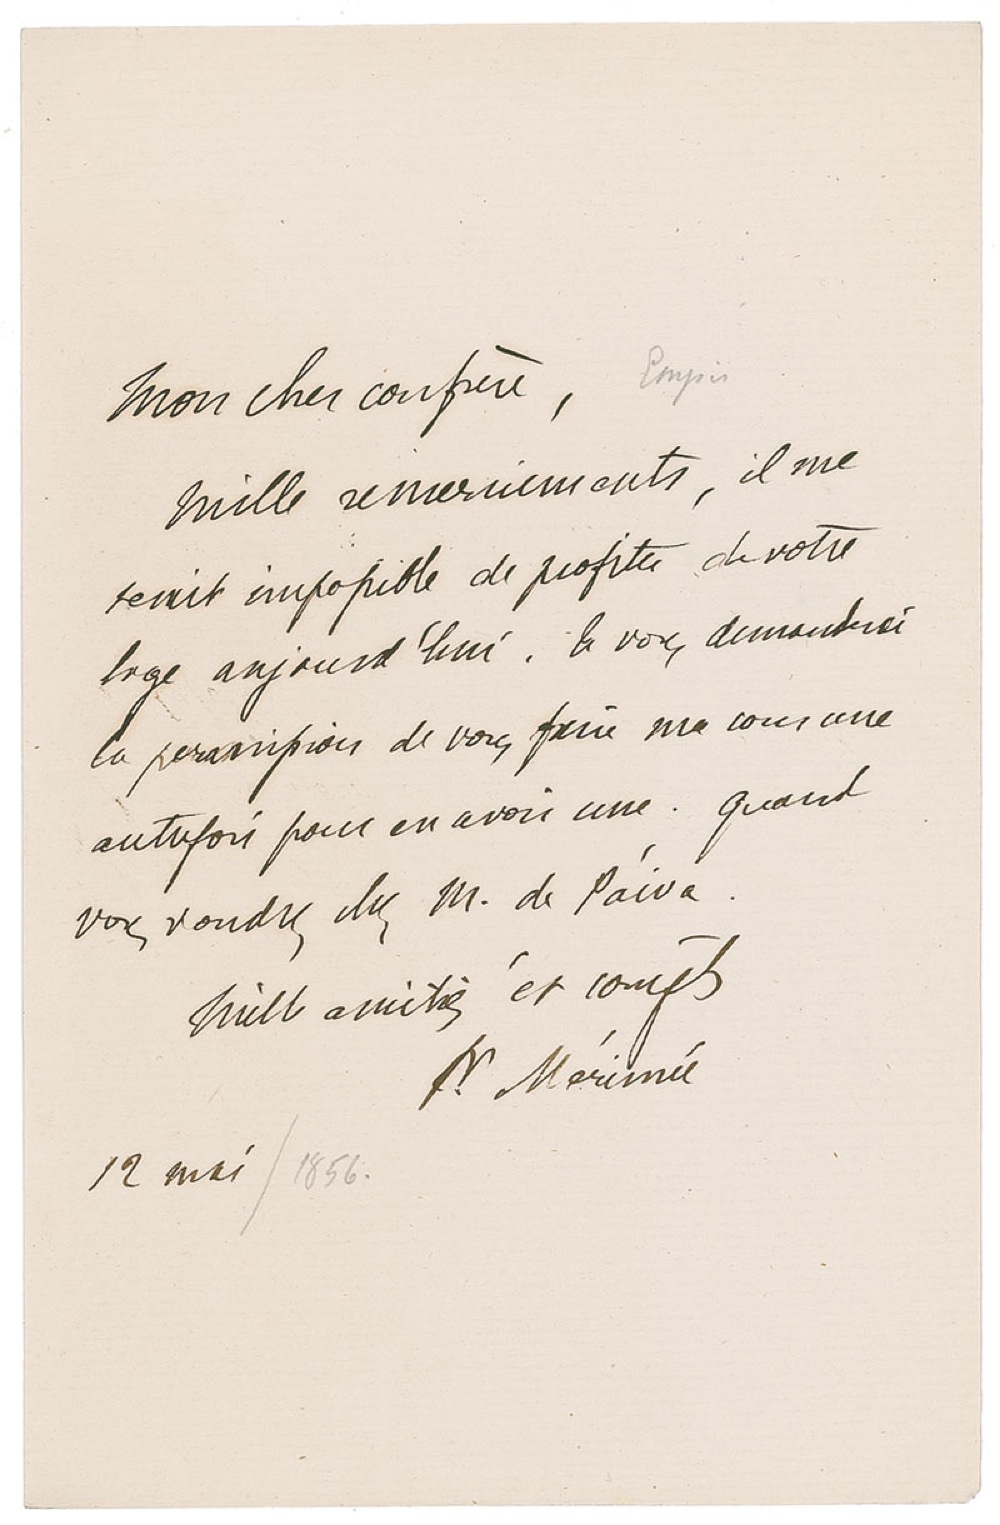 Mon cher confrère, Empis
Mille remerciements, il me
serait impossible de profiter de votre
loge aujourd'hui. Je vous demanderai
la permission de vous faire ma cour une
autrefois pour en avoir une. Quand
vous voudrez chez M. de Païva.
Mille amitiés et compts
Pr Mérimée
12 mai / 1856.